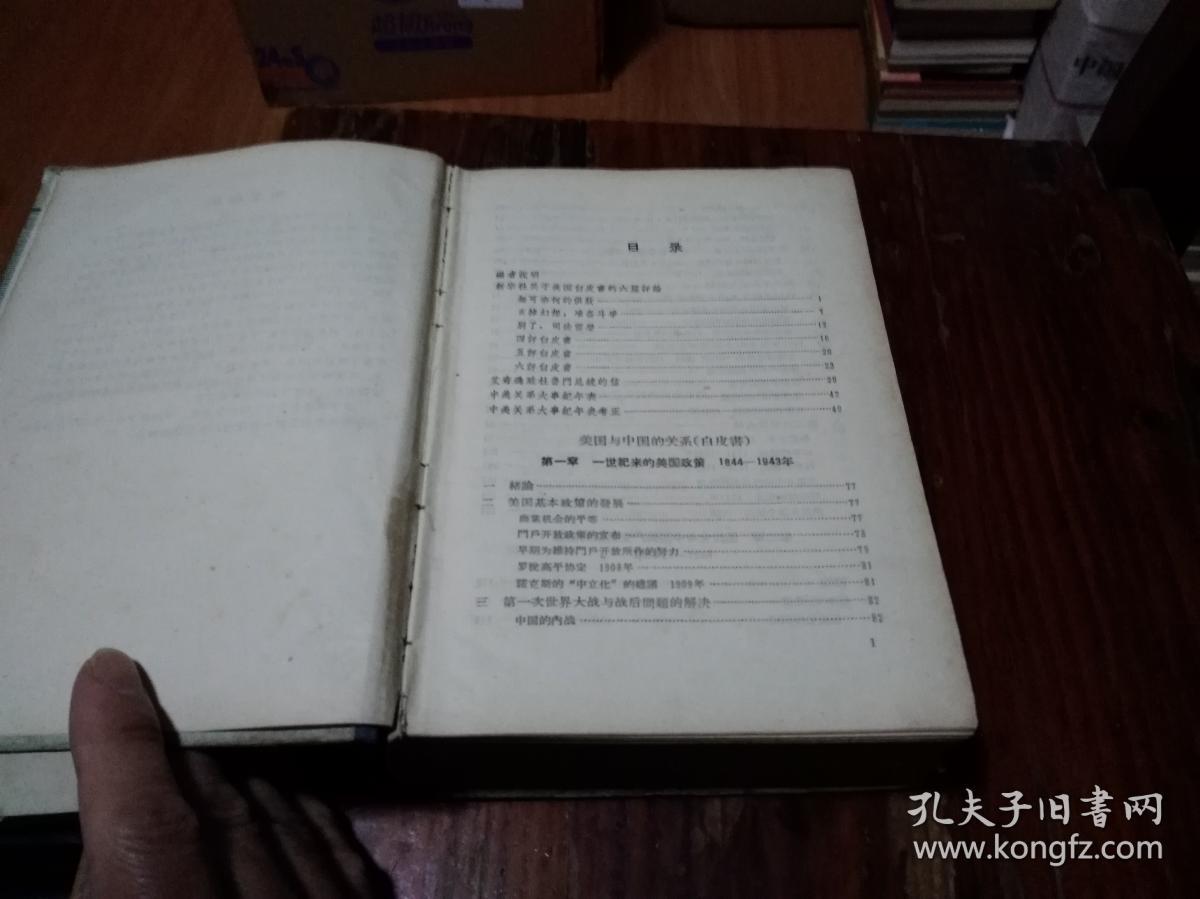 目 录
編者說明
新华社关于美国白皮書的六篇評論
無可奈何的供狀 1
丢掉幻想,准备斗爭
別了,司徒雷登 12
四評白皮書 16
五評白皮書 20
六評白皮書 23
艾奇遜致杜魯門总統的信
中美关系大事紀年表 42
中美关系大事紀年表考正 49
美国与中国的关系(白皮書)
第一章 一世紀来的美国政策 1844—1943年
一 緒論 77
二 美国基本政策的發展 77
商業机会的平等 77
門戶开放政策的宣布 78
早期为維持門戶开放所作的努力 79
罗脫高平协定 1908年 81
諾克斯的“中立化”的建議 1909年 81
三 第一次世界大战与战后問題的解决 82
中国的內战 82
1
孔夫子旧書网
www.kongfz.com